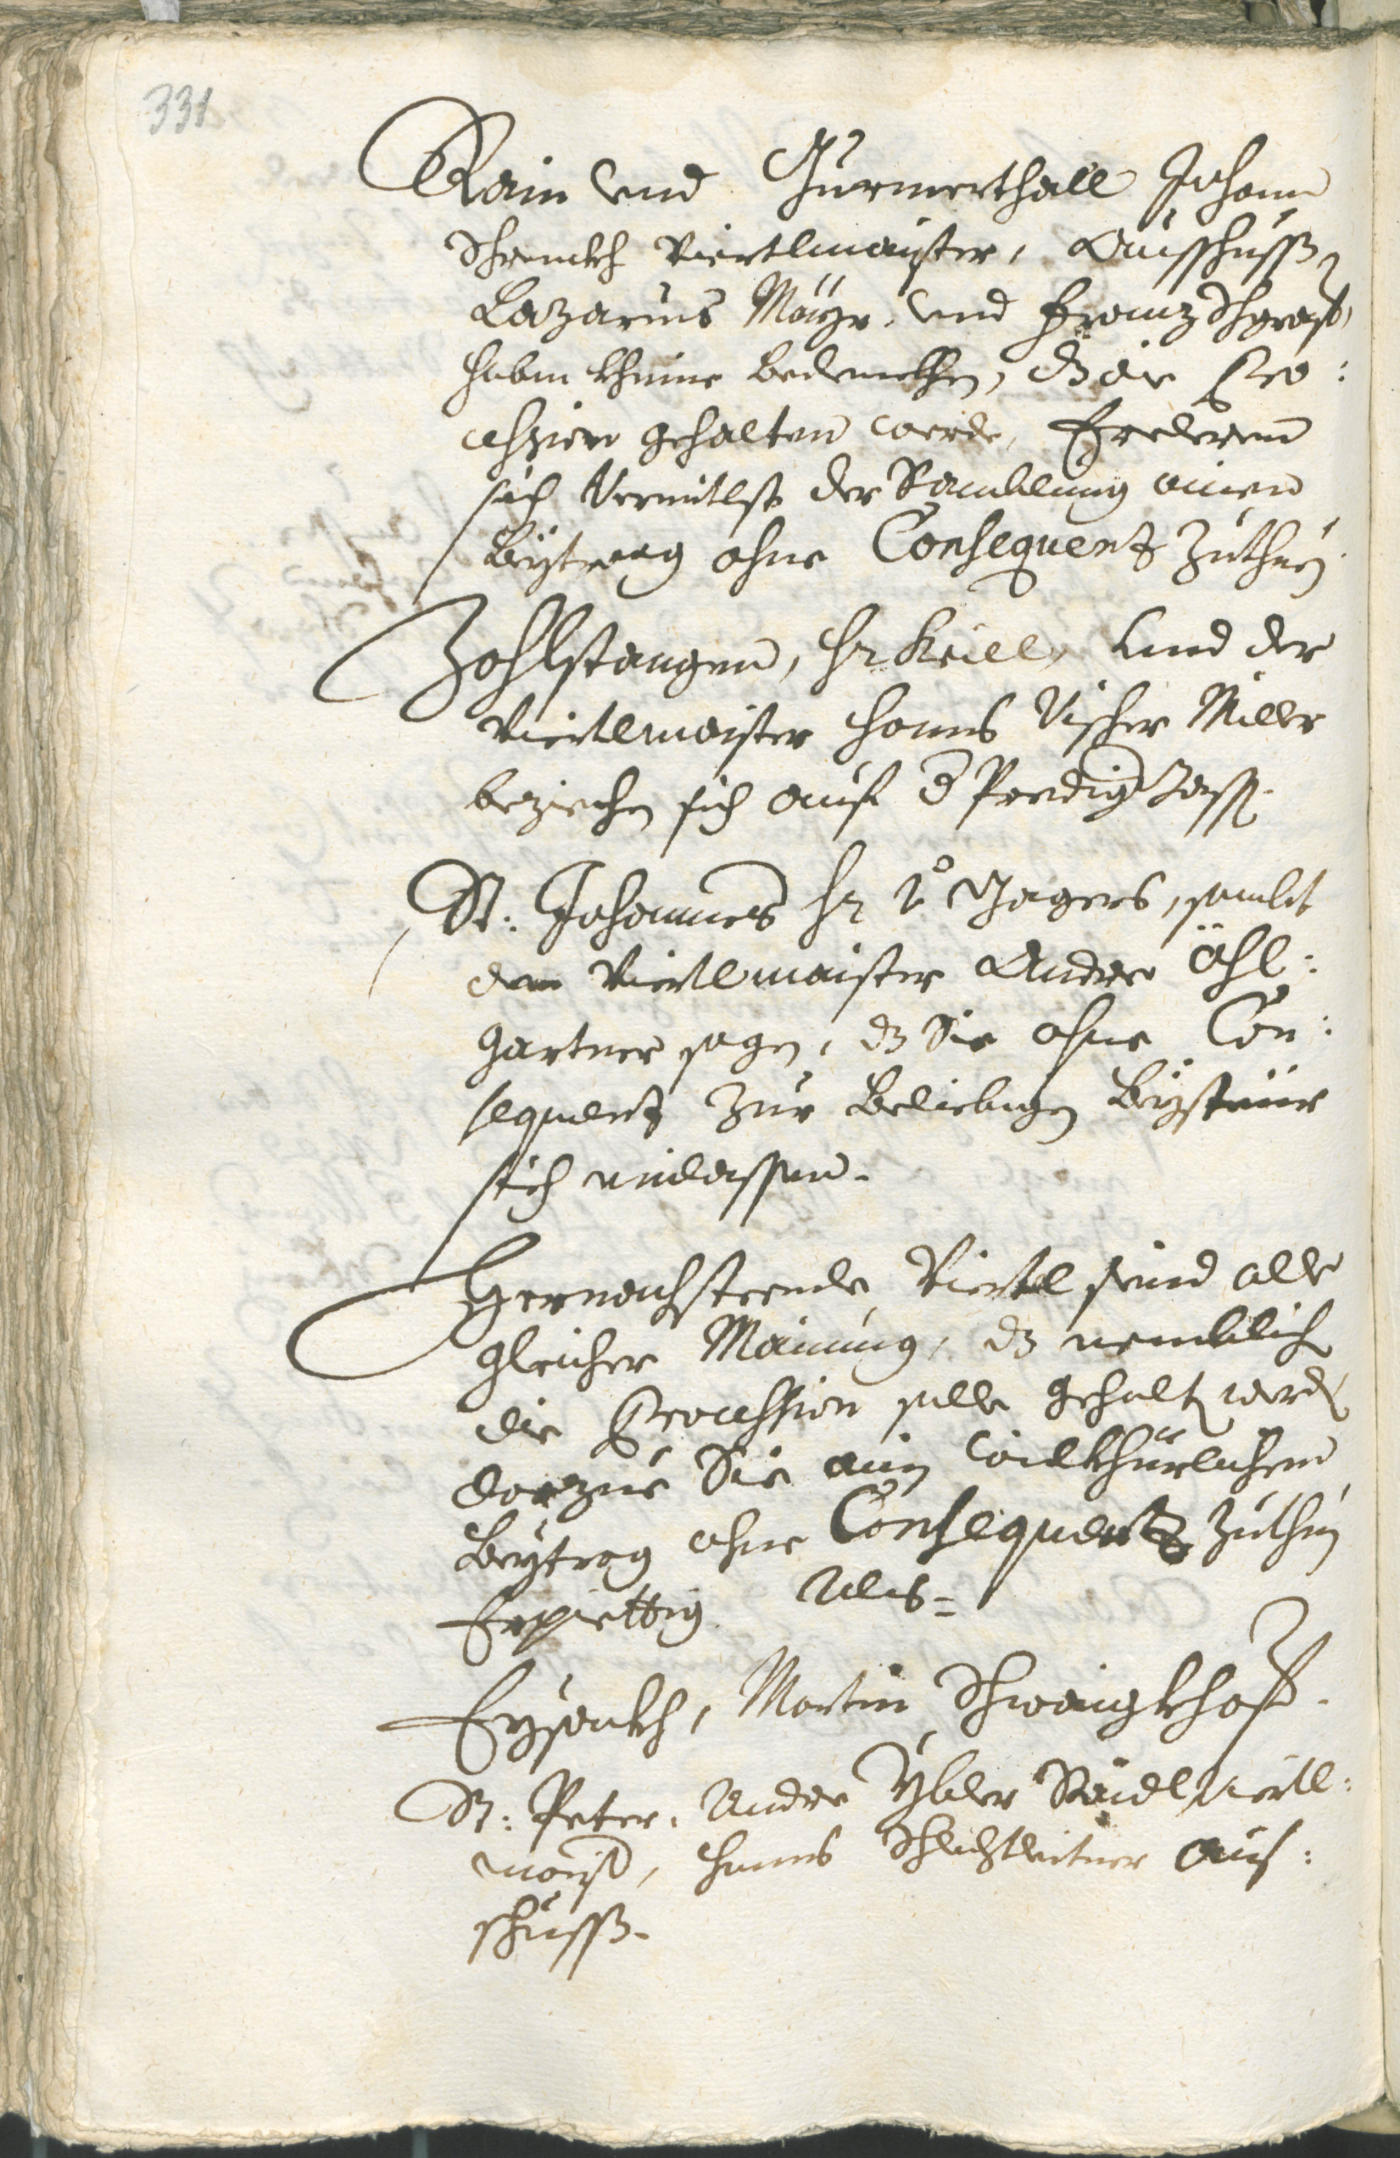 331
Rain und Hurmerthall Johann
Schenckh Viertlmaister, Ausschuss
Lazarus Mayr, und Franz
haben kheine bedenckhen, dz die Pro:
cession gehalten werde,
sich Vermitlst der Samblung einen
Beytrag ohne Consequenz zuthuen
Zohlstangen, Hr Keill, und der
Viertlmaister Hanns Vischer Miller
beziechen sich auf d Predig
St: Johannes Hr Jagers, sambt
dem Viertlmaister Andree Öhl:
gartner sagen, dz Sie ohne Con:
sequenz zur Beliebigen Beysteür
sich einlassen.
Hernachsteende Viertl seind alle
gleicher Mainung, dz nemblich
die Procession solle gehalten werden
darzue Sie ain willkhürlichen
Beytrag ohne Consequentz zuthuen
Erpiettig. Als=
Eysackh, Martin Schweigkhofer.
St: Peter. Andree Ybler Viertl:
maister, Hanns Schlechtleitner Aus:
schuss.